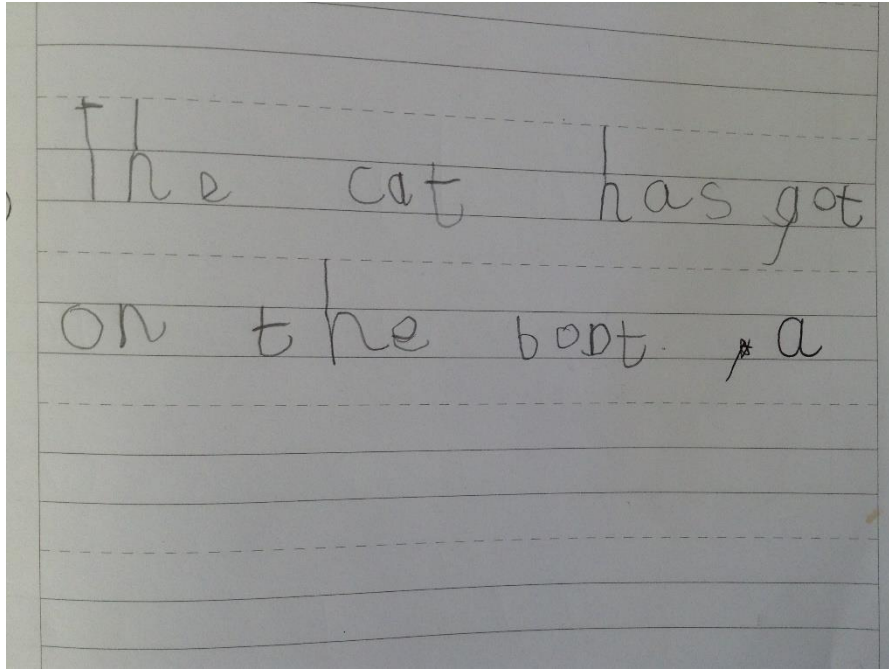 The cat has got
on the boat. , a